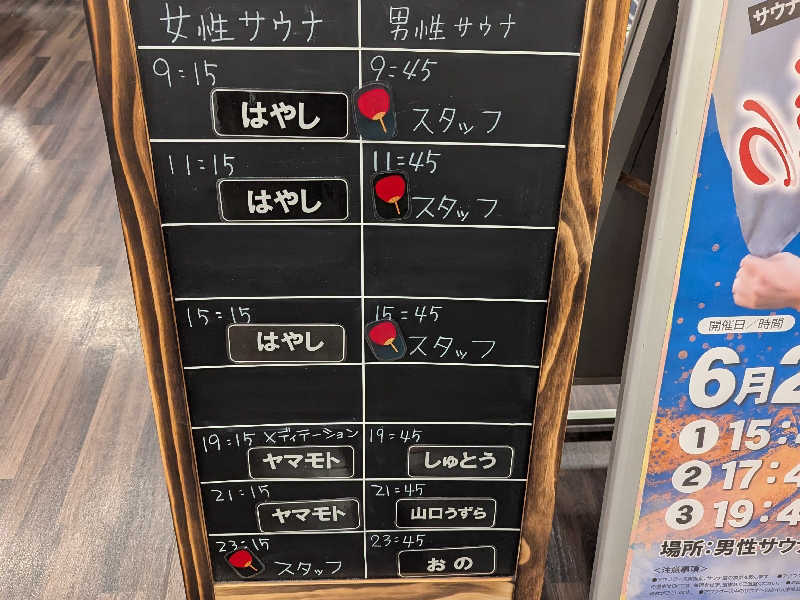 女性サウナ 男性サウナ
9:15 はやし 9:45 スタッフ
11:15 はやし 11:45 スタッフ
15:15 はやし 15:45 スタッフ
19:15 メディテーション ヤマモト 19:45 しゅとう
21:15 ヤマモト 21:45 山口うずら
23:15 スタッフ 23:45 おの
サウナ
開催日/時間
6月2
1 15:
2 17:4
3 19:4
場所:男性サウ
<注意事項>